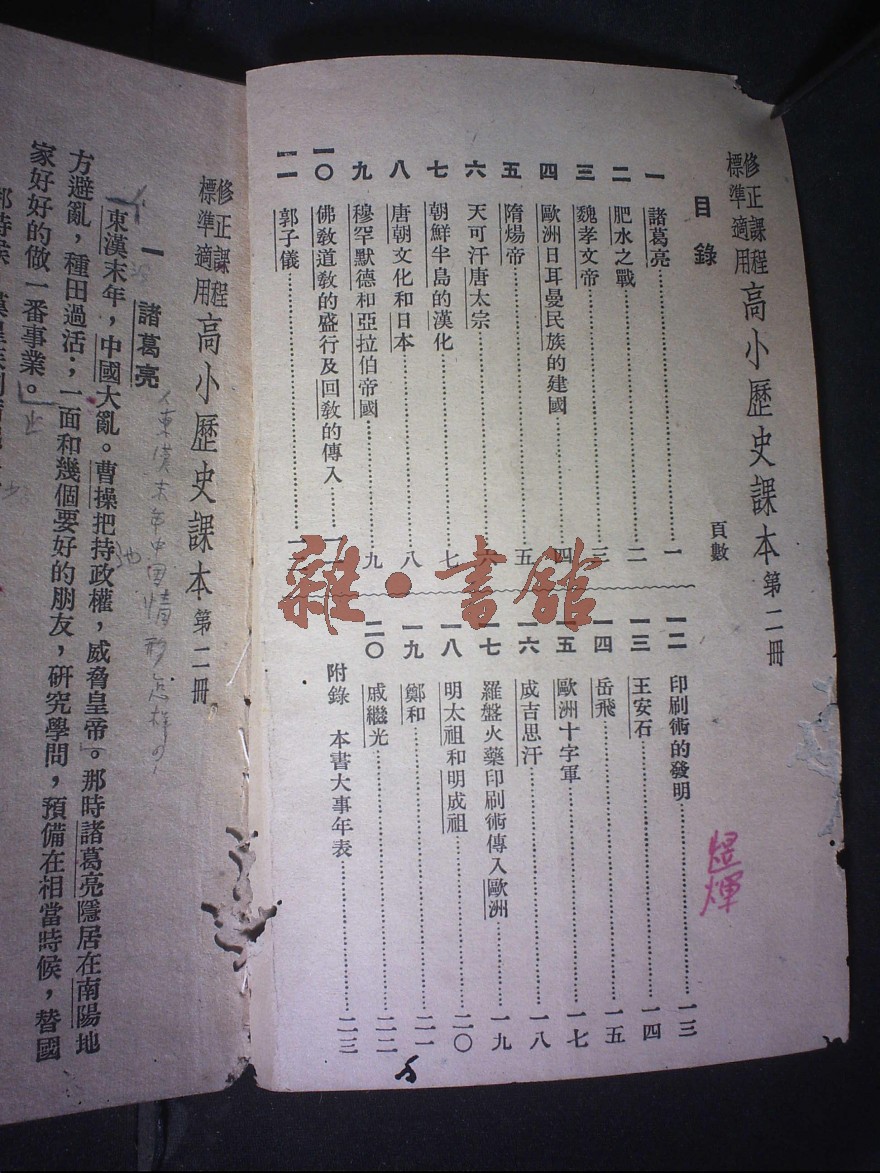 修正課程
標準適用
高小歷史課本第二冊
目錄
頁數
一 諸葛亮 一
二 肥水之戰 二
三 魏孝文帝 三
四 歐洲日耳曼民族的建國 四
五 隋煬帝 五
六 天可汗唐太宗 六
七 朝鮮半島的漢化 七
八 唐朝文化和日本 八
九 穆罕默德和亞拉伯帝國 九
一〇 佛教道教的盛行及回教的傳入
一一 郭子儀
一二 印刷術的發明 一三
一三 王安石 一四
一四 岳飛 一五
一五 歐洲十字軍 一七
一六 成吉思汗 一八
一七 羅盤火藥印刷術傳入歐洲 一九
一八 明太祖和明成祖 二〇
一九 鄭和 二一
二〇 戚繼光 二二
附錄 本書大事年表 二三
輝
雜·書館
修正課程
標準適用
高小歷史課本第二冊
東漢末年中国情形怎样的
一 諸葛亮
東漢末年，中國大亂。曹操把持政權，威脅皇帝。那時諸葛亮隱居在南陽地
方避亂，種田過活；一面和幾個要好的朋友，研究學問，預備在相當時候，替國
家好好的做一番事業。
止